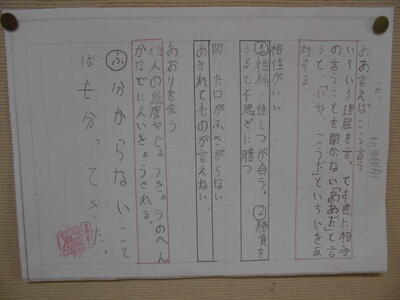 ああ言えばこう言う
いろいろ理屈を言ってす直に相手
の言うことを聞かない「ああだ」と言
うと、「いや、こうだ」といちいち反
対する
相性がいい
①性格・性しつが合う。②勝負を
すると不思ぎに勝つ
開いた口がふさがらない
あきれてものが言えない。
あおりを食う
他人の態度やじょうきょうのへん
かなどにえいきょうされる。
ふ 分からないこと
ばも分ってきた。